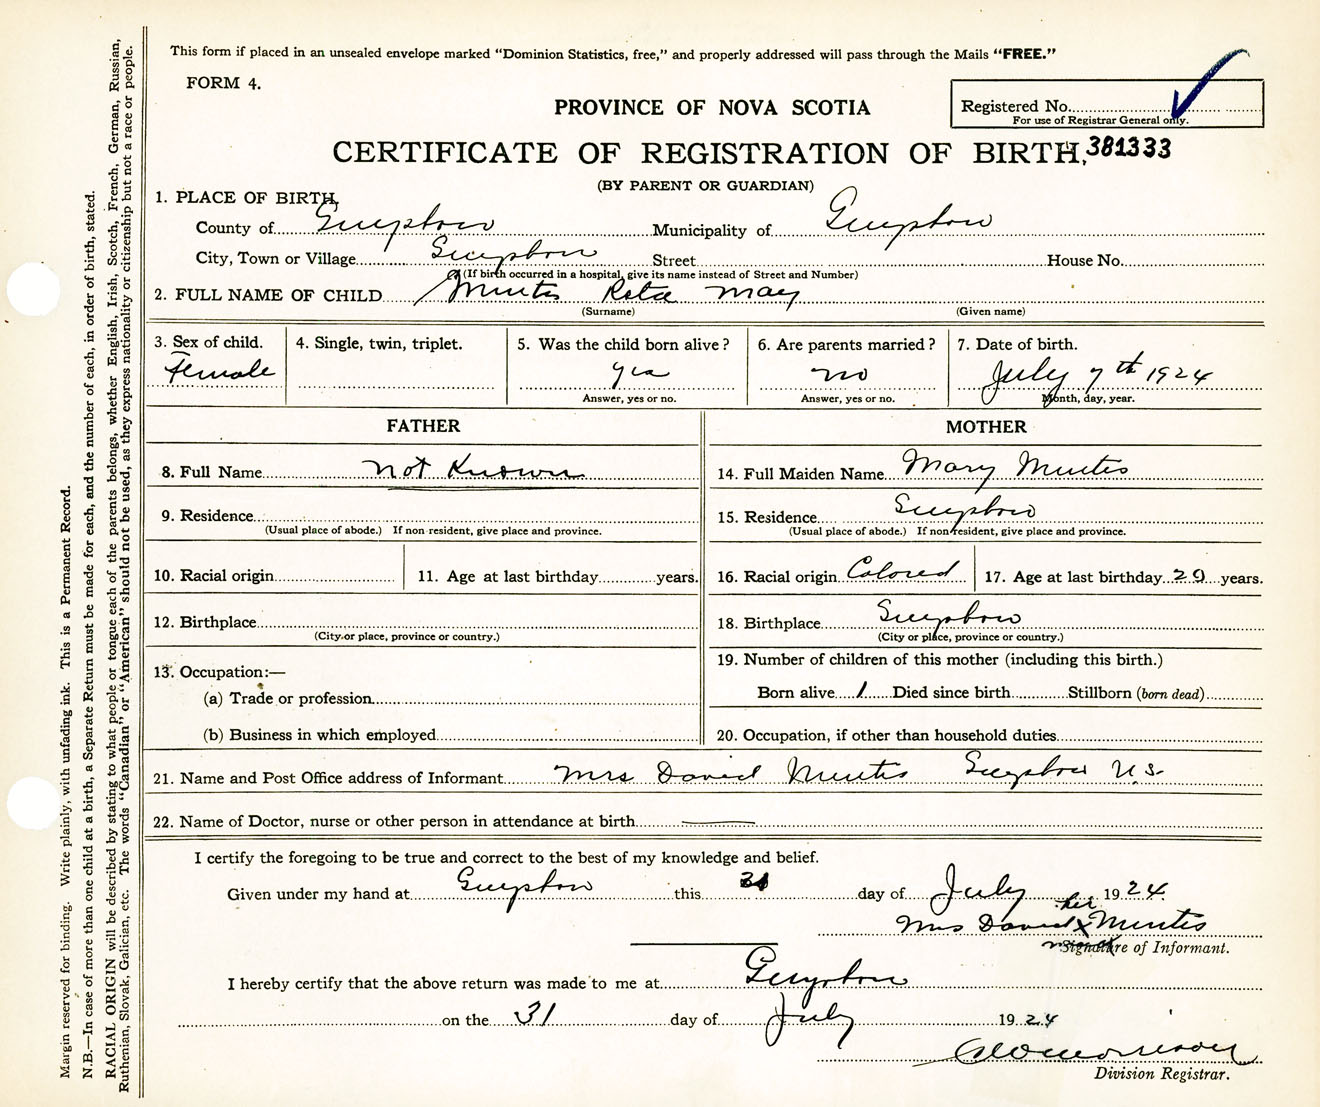 This form if placed in an unsealed envelope marked “Dominion Statistics, free,” and properly addressed will pass through the Mails “FREE.”
FORM 4.
PROVINCE OF NOVA SCOTIA
Registered No.
For use of Registrar General only.
CERTIFICATE OF REGISTRATION OF BIRTH, 381333
(BY PARENT OR GUARDIAN)
1. PLACE OF BIRTH,
County of Guysboro Municipality of Guysboro
City, Town or Village Guysboro Street House No.
(If birth occurred in a hospital, give its name instead of Street and Number)
2. FULL NAME OF CHILD Mintis Reta May
(Surname) (Given name)
3. Sex of child. 4. Single, twin, triplet. 5. Was the child born alive? 6. Are parents married? 7. Date of birth.
Female yes no July 7th 1924
Answer, yes or no. Answer, yes or no. Month, day, year.
FATHER MOTHER
8. Full Name not Known 14. Full Maiden Name Mary Mintis
9. Residence 15. Residence Guysboro
(Usual place of abode.) If non-resident, give place and province. (Usual place of abode.) If non-resident, give place and province.
10. Racial origin 11. Age at last birthday years. 16. Racial origin Colored 17. Age at last birthday 29 years.
12. Birthplace 18. Birthplace Guysboro
(City or place, province or country.) (City or place, province or country.)
13. Occupation:— 19. Number of children of this mother (including this birth.)
(a) Trade or profession Born alive 1 Died since birth Stillborn (born dead)
(b) Business in which employed 20. Occupation, if other than household duties
21. Name and Post Office address of Informant Mrs David Mintis Guysboro N.S.
22. Name of Doctor, nurse or other person in attendance at birth
I certify the foregoing to be true and correct to the best of my knowledge and belief.
Given under my hand at Guysboro this 31 day of July 1924
her
Mrs David X Mintis
mark
Signature of Informant.
I hereby certify that the above return was made to me at Guysboro
on the 31 day of July 1924
Division Registrar.
Margin reserved for binding. Write plainly, with unfading ink. This is a Permanent Record.
N.B.—In case of more than one child at a birth, a Separate Return must be made for each, and the number of each, in order of birth, stated.
RACIAL ORIGIN will be described by stating to what people or tongue each of the parents belongs, whether English, Irish, Scotch, French, German, Russian,
Ruthenian, Slovak, Galician, etc. The words “Canadian” or “American” should not be used, as they express nationality or citizenship but not a race or people.